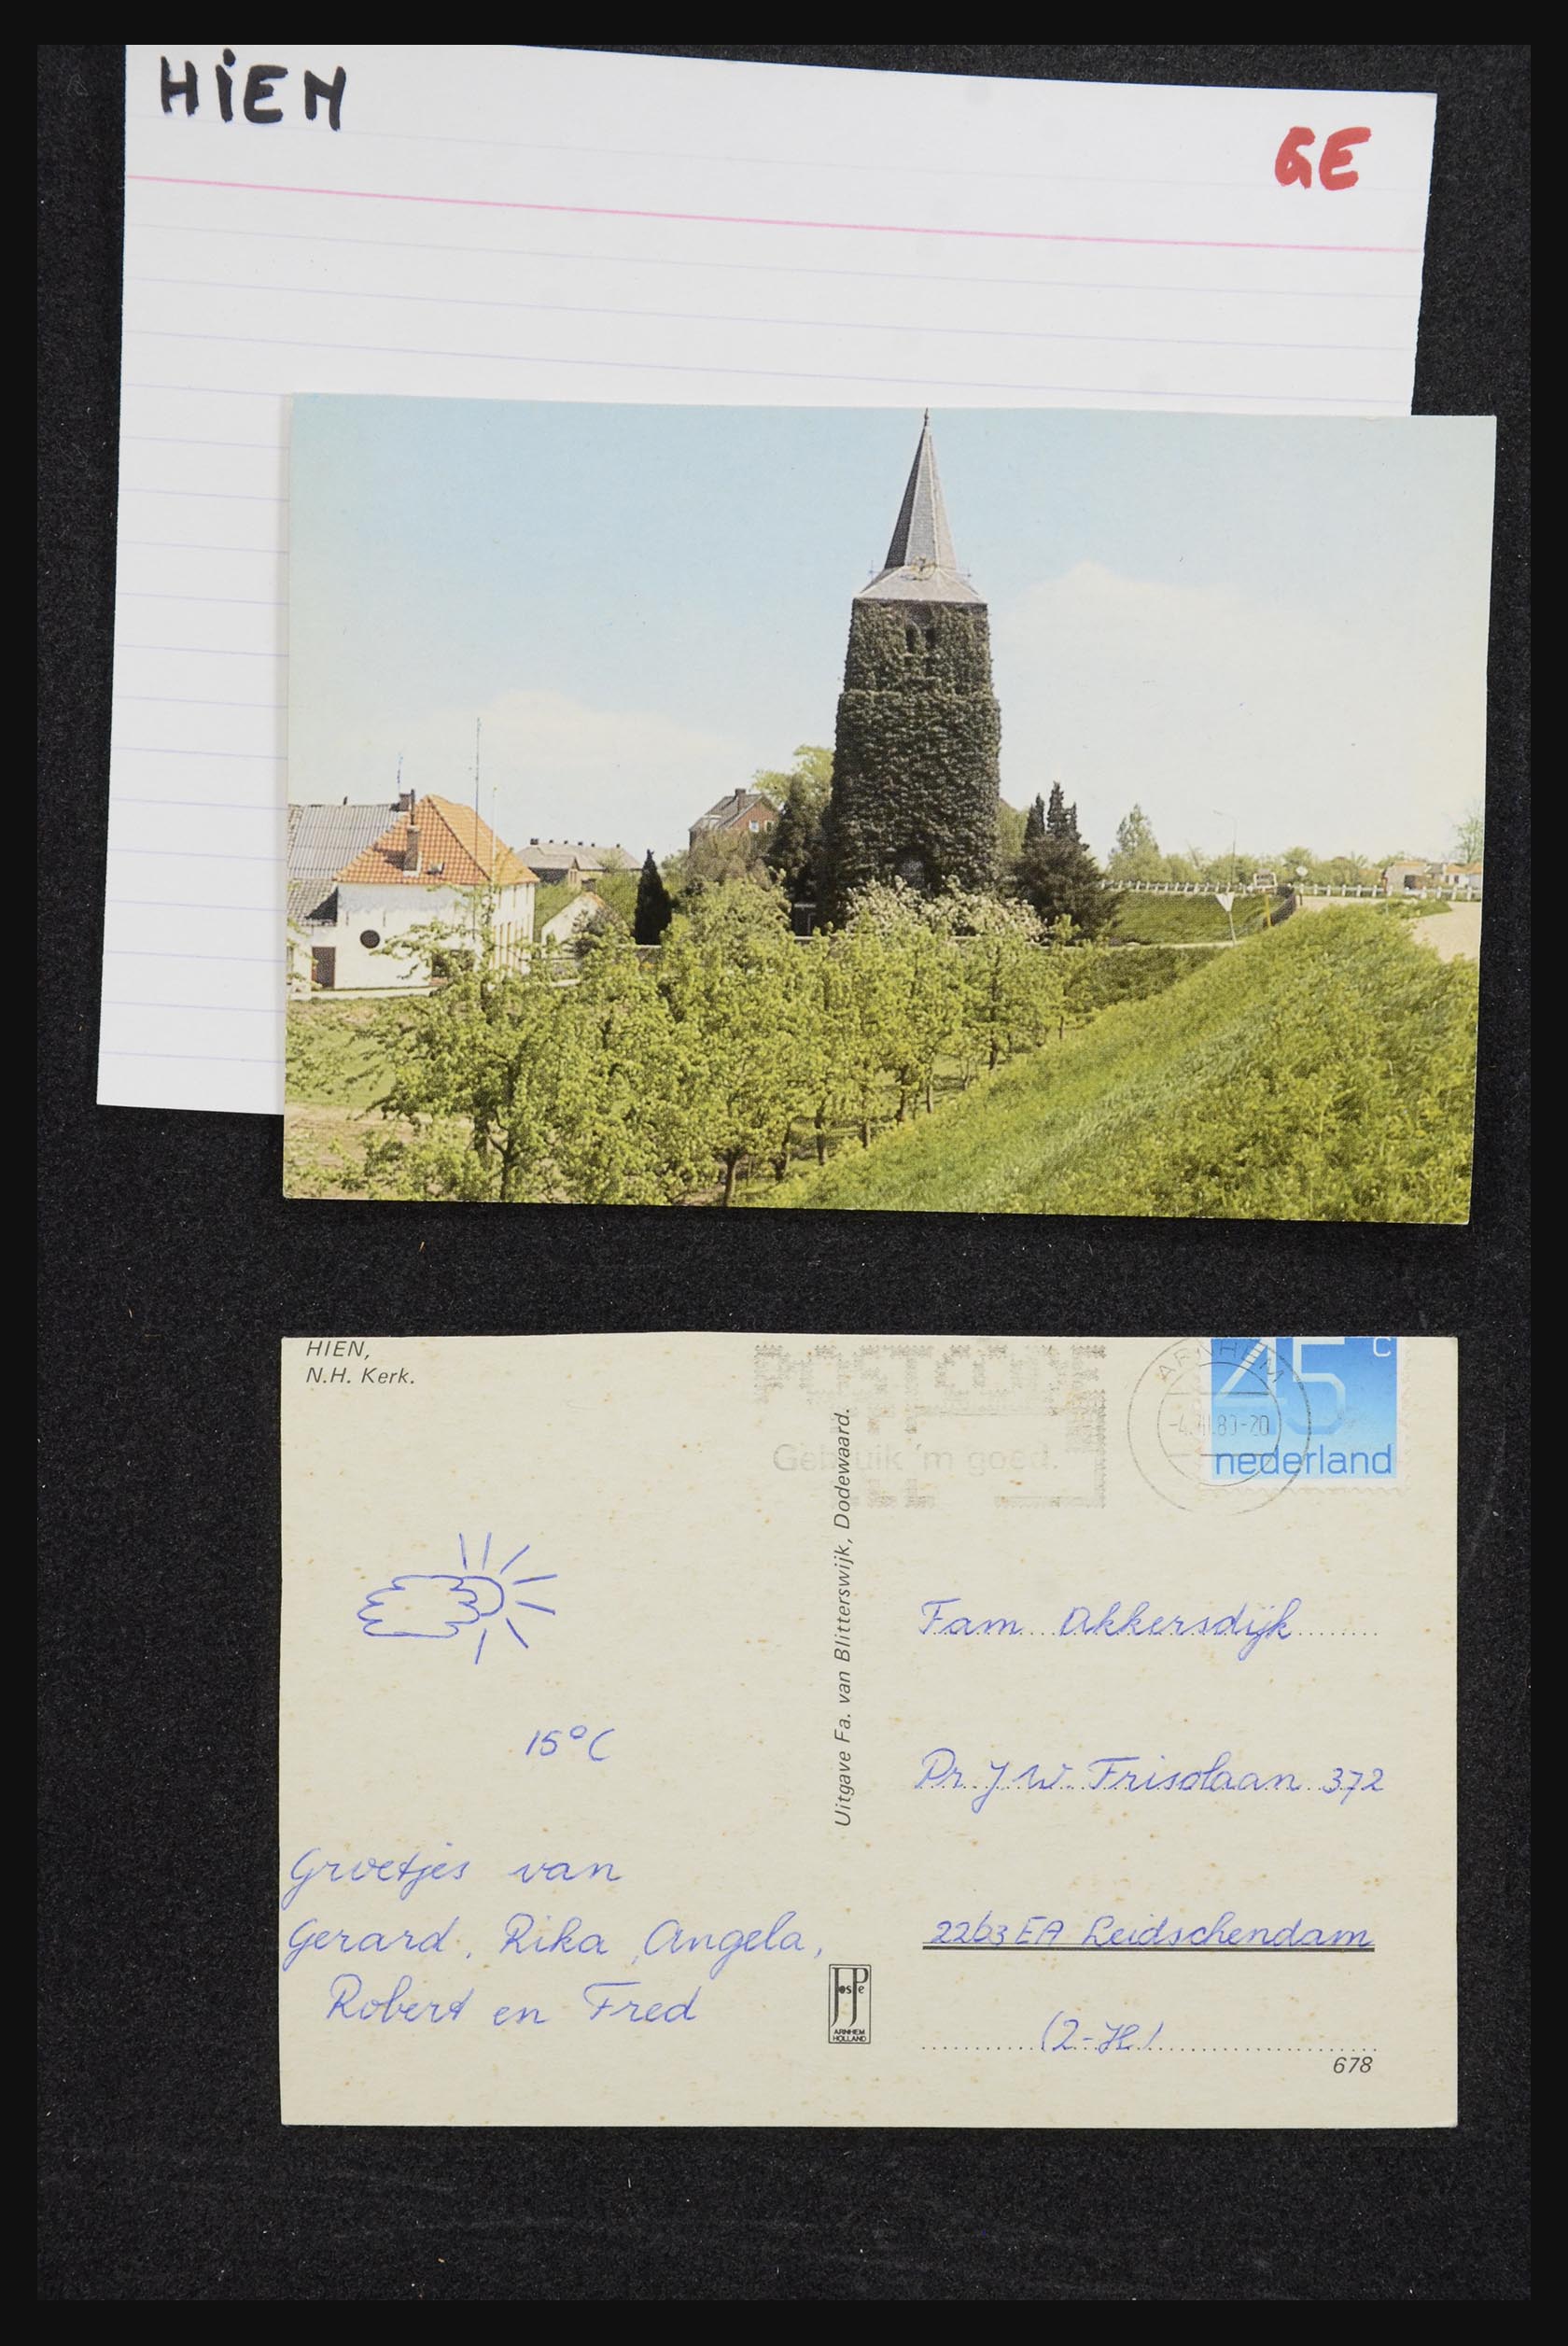 HiEN
GE
HIEN,
N.H. Kerk.
POSTCODE
Gebruik 'm goed.
ARNHEM
45 c
nederland
Uitgave Fa. van Blitterswijk, Dodewaard.
15°C
Groetjes van
Gerard, Rika, Angela,
Robert en Fred
Fam Akkersdijk
Pr. J W. Frisolaan 372
2263 EA Leidschendam
(Z-H)
JosPe
ARNHEM
HOLLAND
678